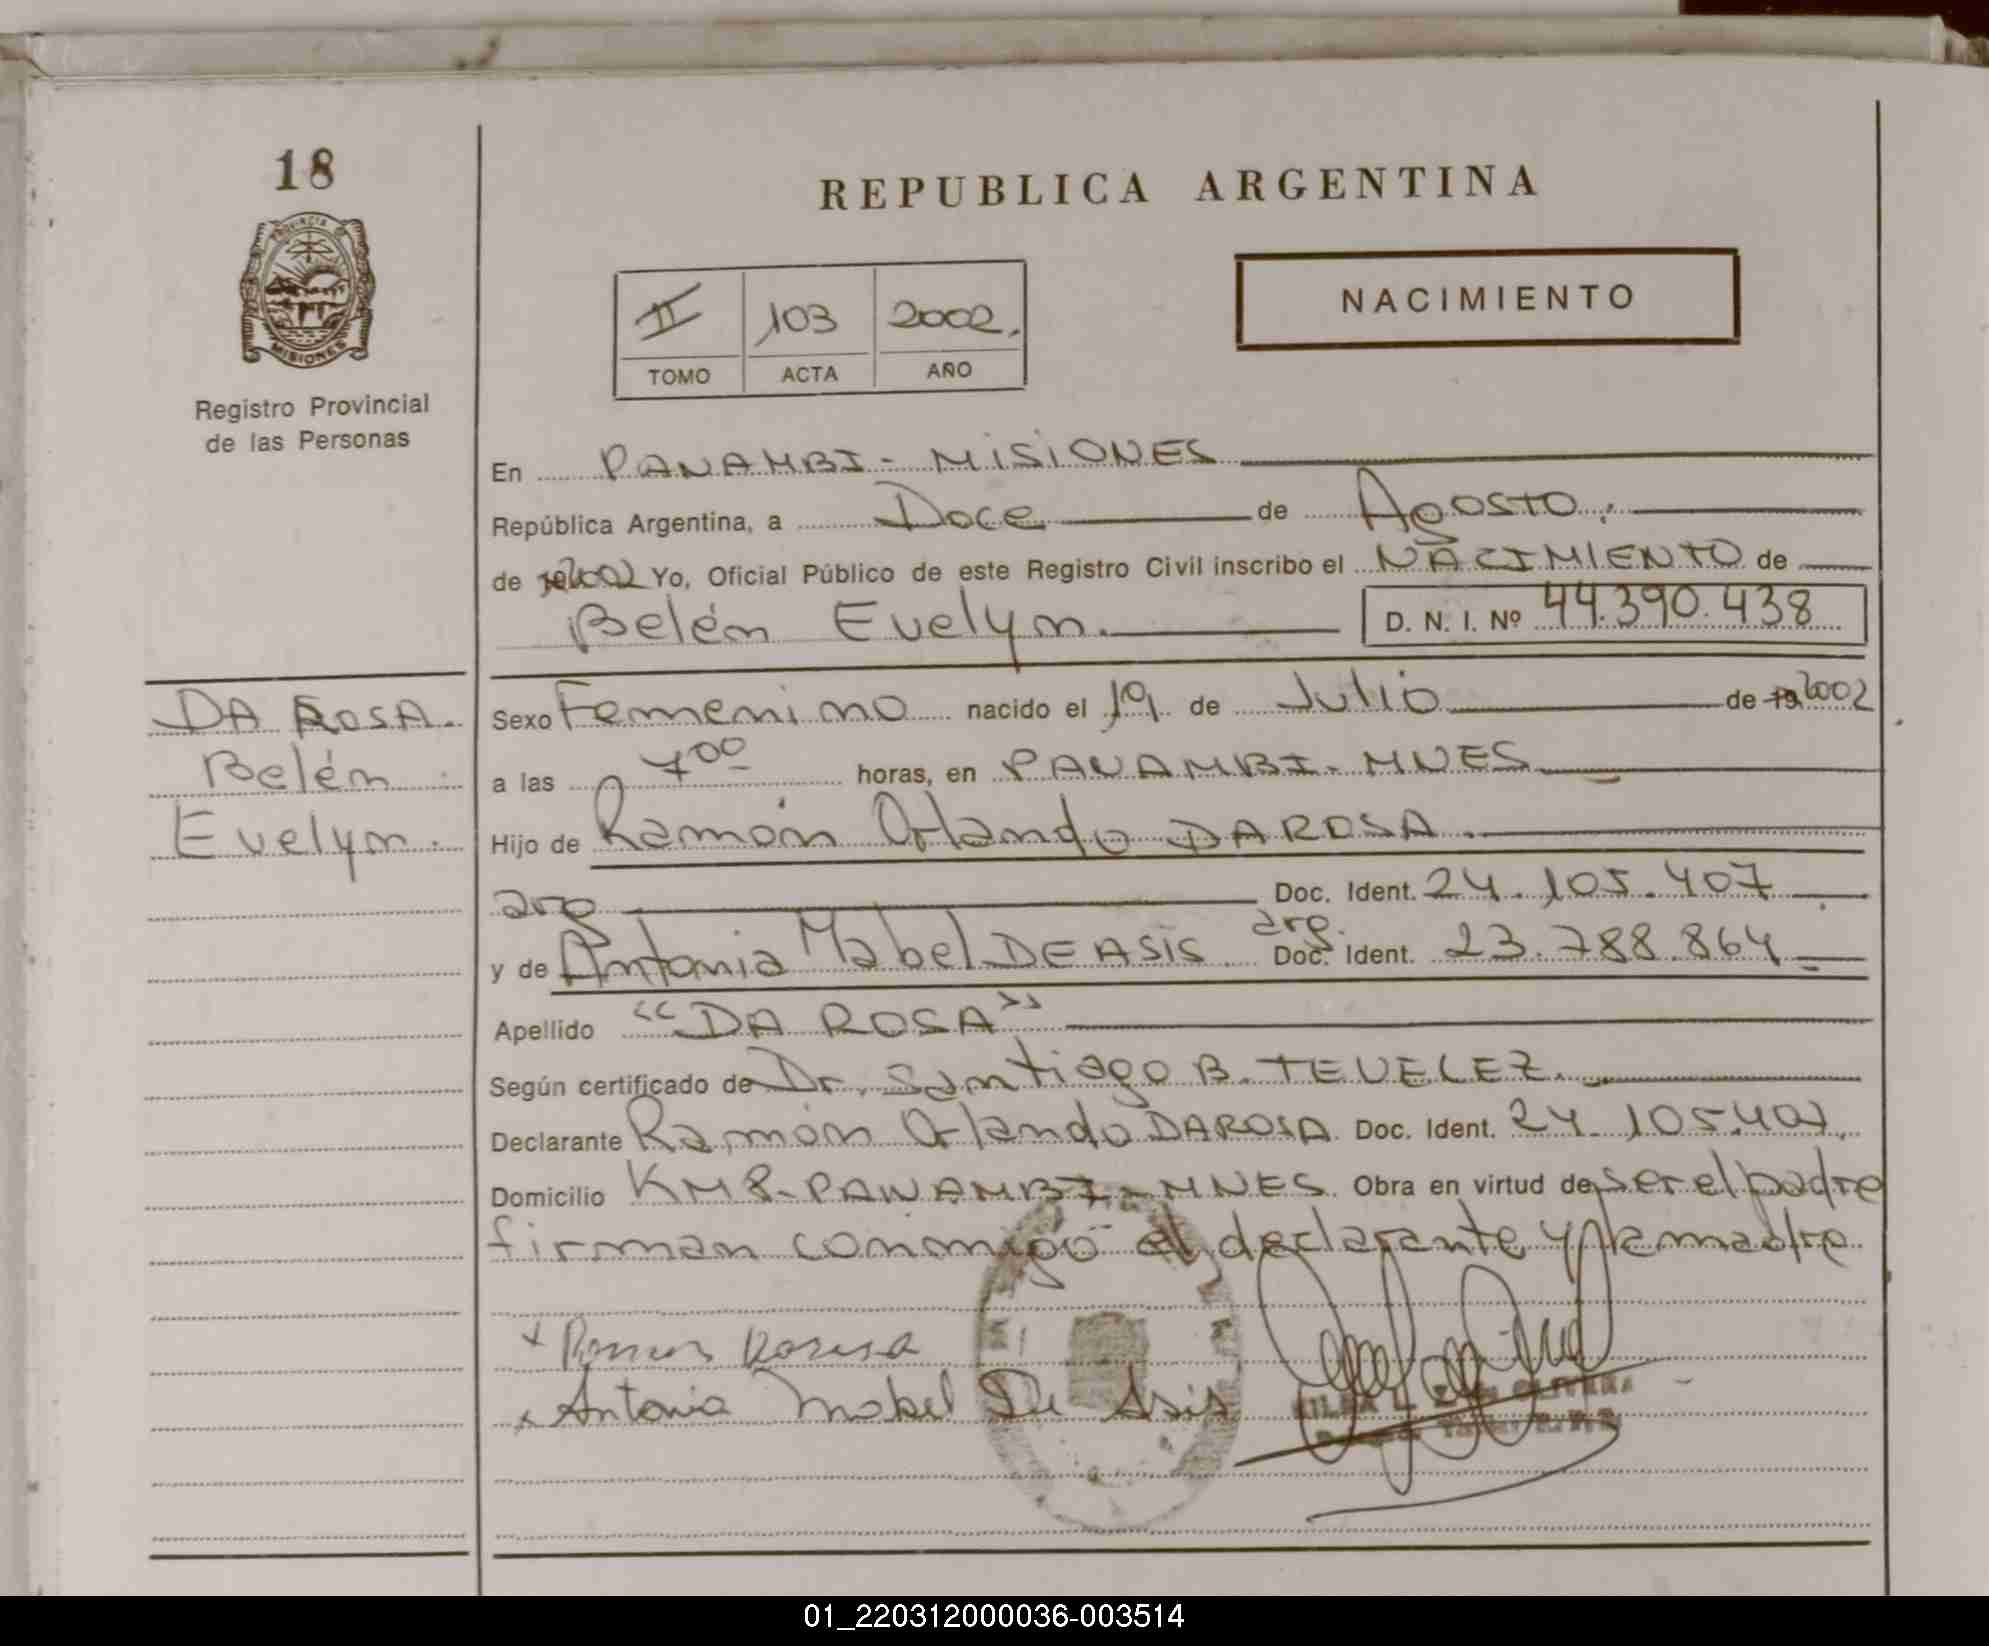 18
PROVINCIA DE
MISIONES
Registro Provincial
de las Personas
REPUBLICA ARGENTINA
II 103 2002.
TOMO ACTA AÑO
NACIMIENTO
En PANAMBI - MISIONES
República Argentina, a Doce de Agosto.
de 2002 Yo, Oficial Público de este Registro Civil inscribo el NACIMIENTO de
Belén Evelyn. D. N. I. Nº 44.390.438
DA ROSA.
Belén
Evelyn.
Sexo Femenino nacido el 19 de Julio de 19 2002
a las 7 00 horas, en PANAMBI - MNES
Hijo de Ramón Orlando DA ROSA.
arg Doc. Ident. 24.105.407
y de Antonia Mabel DE ASIS arg. Doc. Ident. 23.788.864
Apellido "DA ROSA"
Según certificado de Dr. Santiago B. TEVELEZ.
Declarante Ramón Orlando DA ROSA Doc. Ident. 24.105.407.
Domicilio KM 8 - PANAMBI - MNES Obra en virtud de ser el padre
firman conmigo el declarante y la madre
x Ramon Darosa
x Antonia Mabel De Asis
01_220312000036-003514